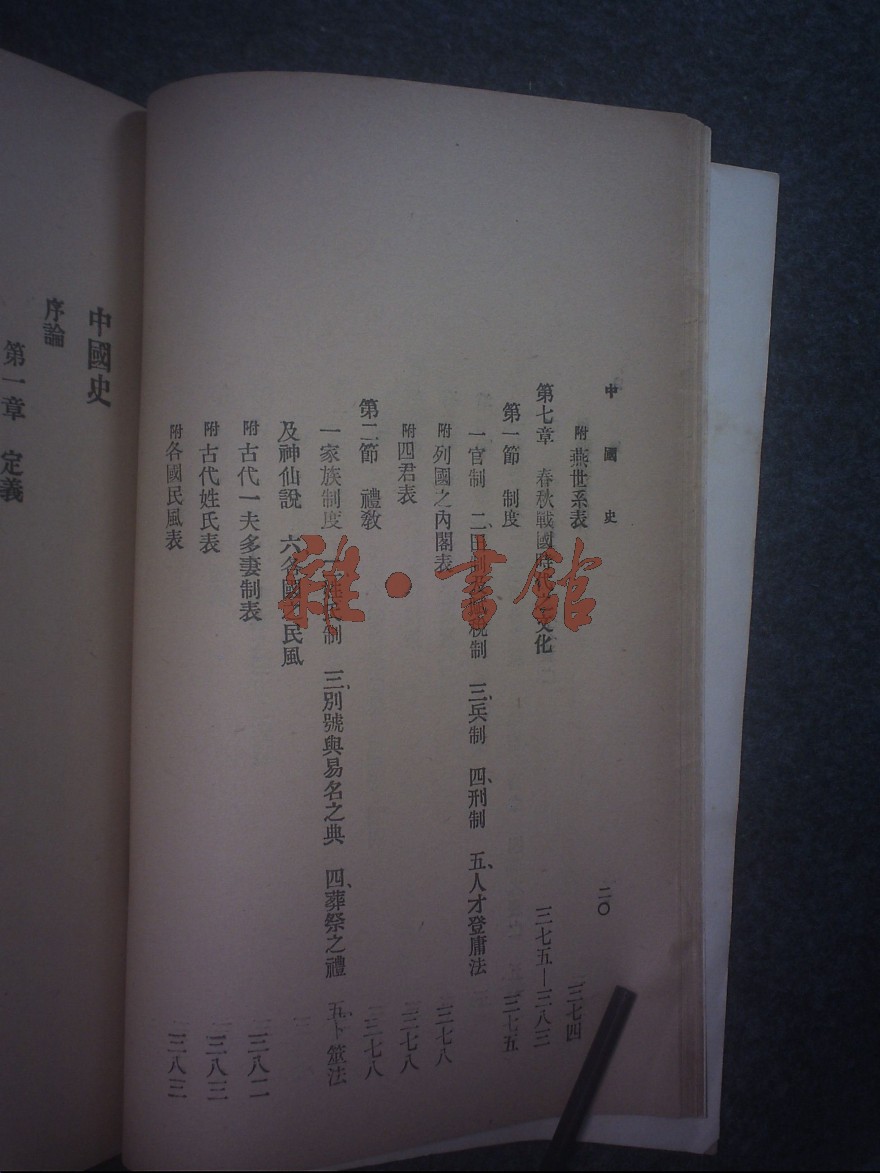 中國史
二〇
附 燕世系表 三七四
第七章 春秋戰國時代之文化 三七五—三八三
第一節 制度 三七五
一官制 二、田制及賦稅制 三、兵制 四、刑制 五、人才登庸法
附 列國之內閣表 三七八
附 四君表 三七八
第二節 禮敎 三七八
一家族制度 二、姓氏制 三、別號與易名之典 四、葬祭之禮 五、卜筮法
及神仙說 六各國之民風
附 古代一夫多妻制表 三八二
附 古代姓氏表 三八三
附 各國民風表 三八三
中國史
序論
第一章 定義
雜·書館